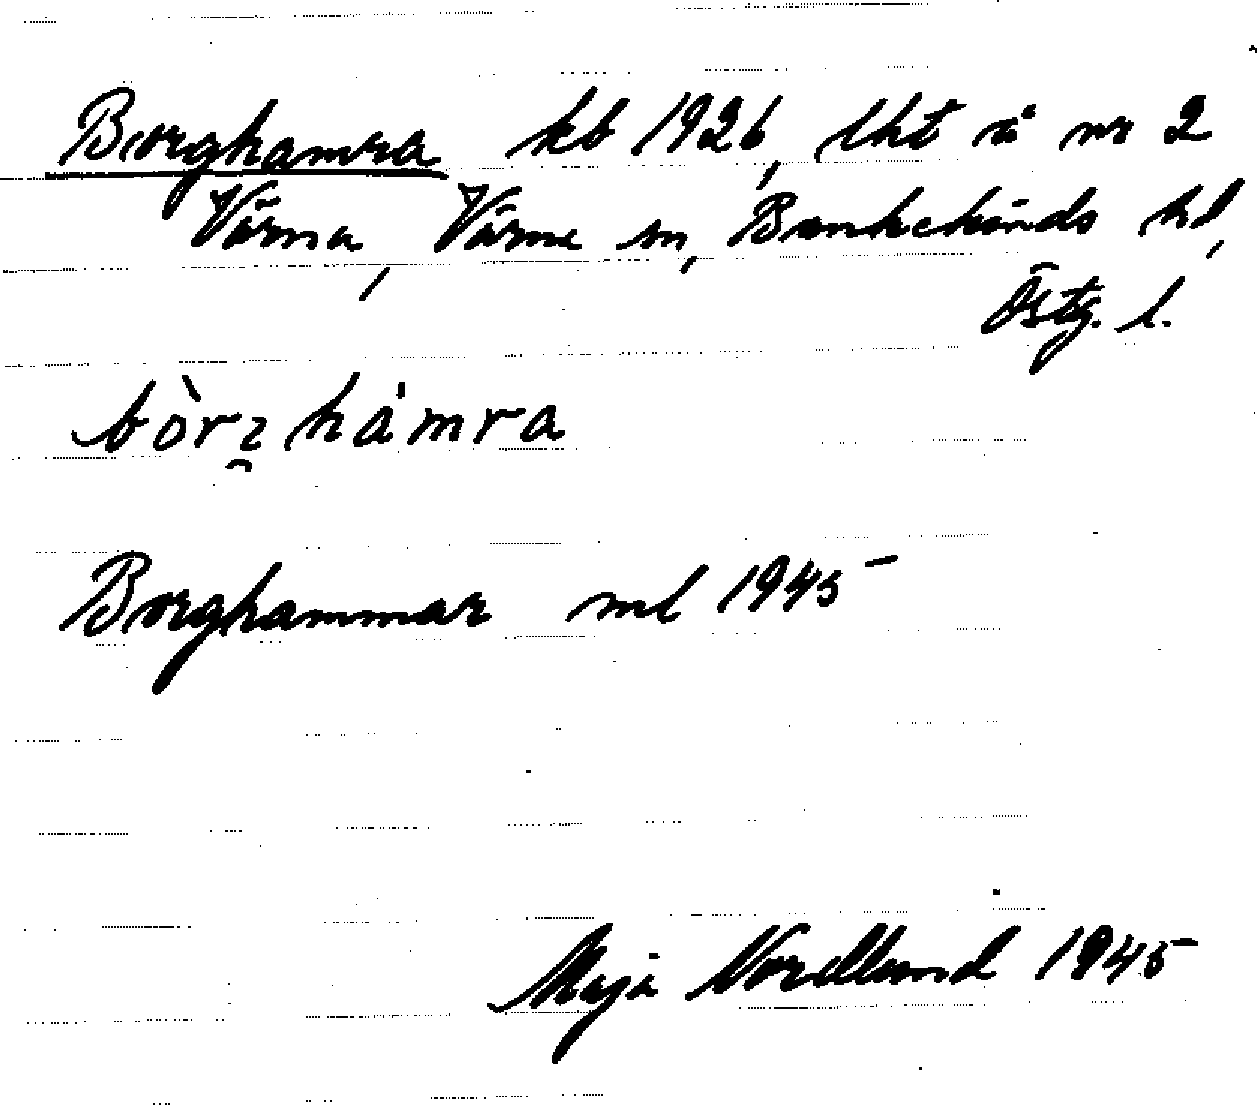 Borghamra kb 1926, lht å nr 2
Värna, Värna sn, Bankekinds hd,
Östg. l.
bòrꝫ hámra
Borghammar ml 1945
Maja Nordlund 1945